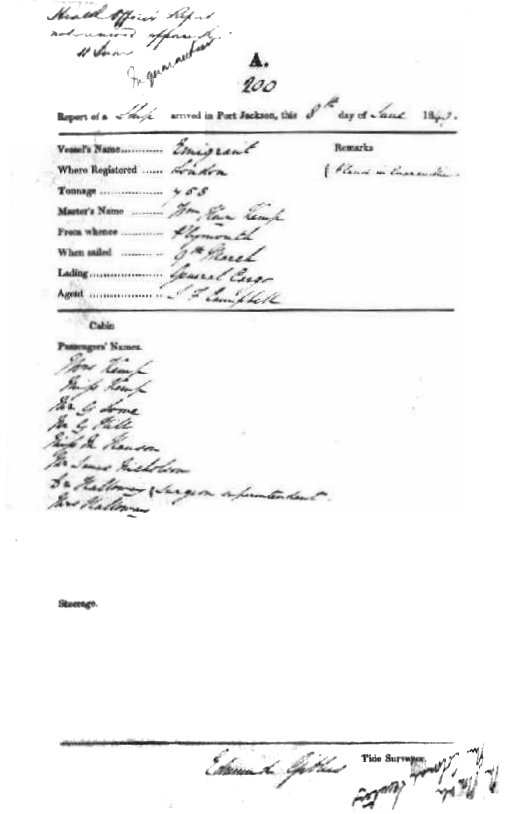 Health Officer's Report
not received
11 June
In quarantine
A.
200
Report of a Ship arrived in Port Jackson, this 8th day of June 184
Vessel's Name............ Emigrant Remarks
Where Registered ...... London { Placed in Quarantine.
Tonnage .................. 753
Master's Name ......... Wm Kemp
From whence ............ Plymouth
When sailed ............ 9th March
Lading..................... General Cargo
Agent ..................... Campbell
Cabin
Passengers' Names.
Mrs Kemp
Miss Kemp
Mr G Lome
Mr G Hill
Miss M Hanson
Mr James Nicholson
Dr Halloway { Surgeon superintendent
Mrs Halloway
Steerage.
Edmund
Tide Surveyor.